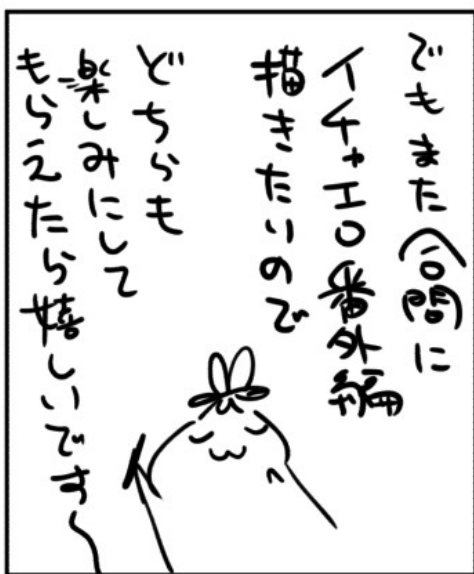 でもまた合間に
イチャエロ番外編
描きたいので
どちらも
楽しみにして
もらえたら嬉しいです〜